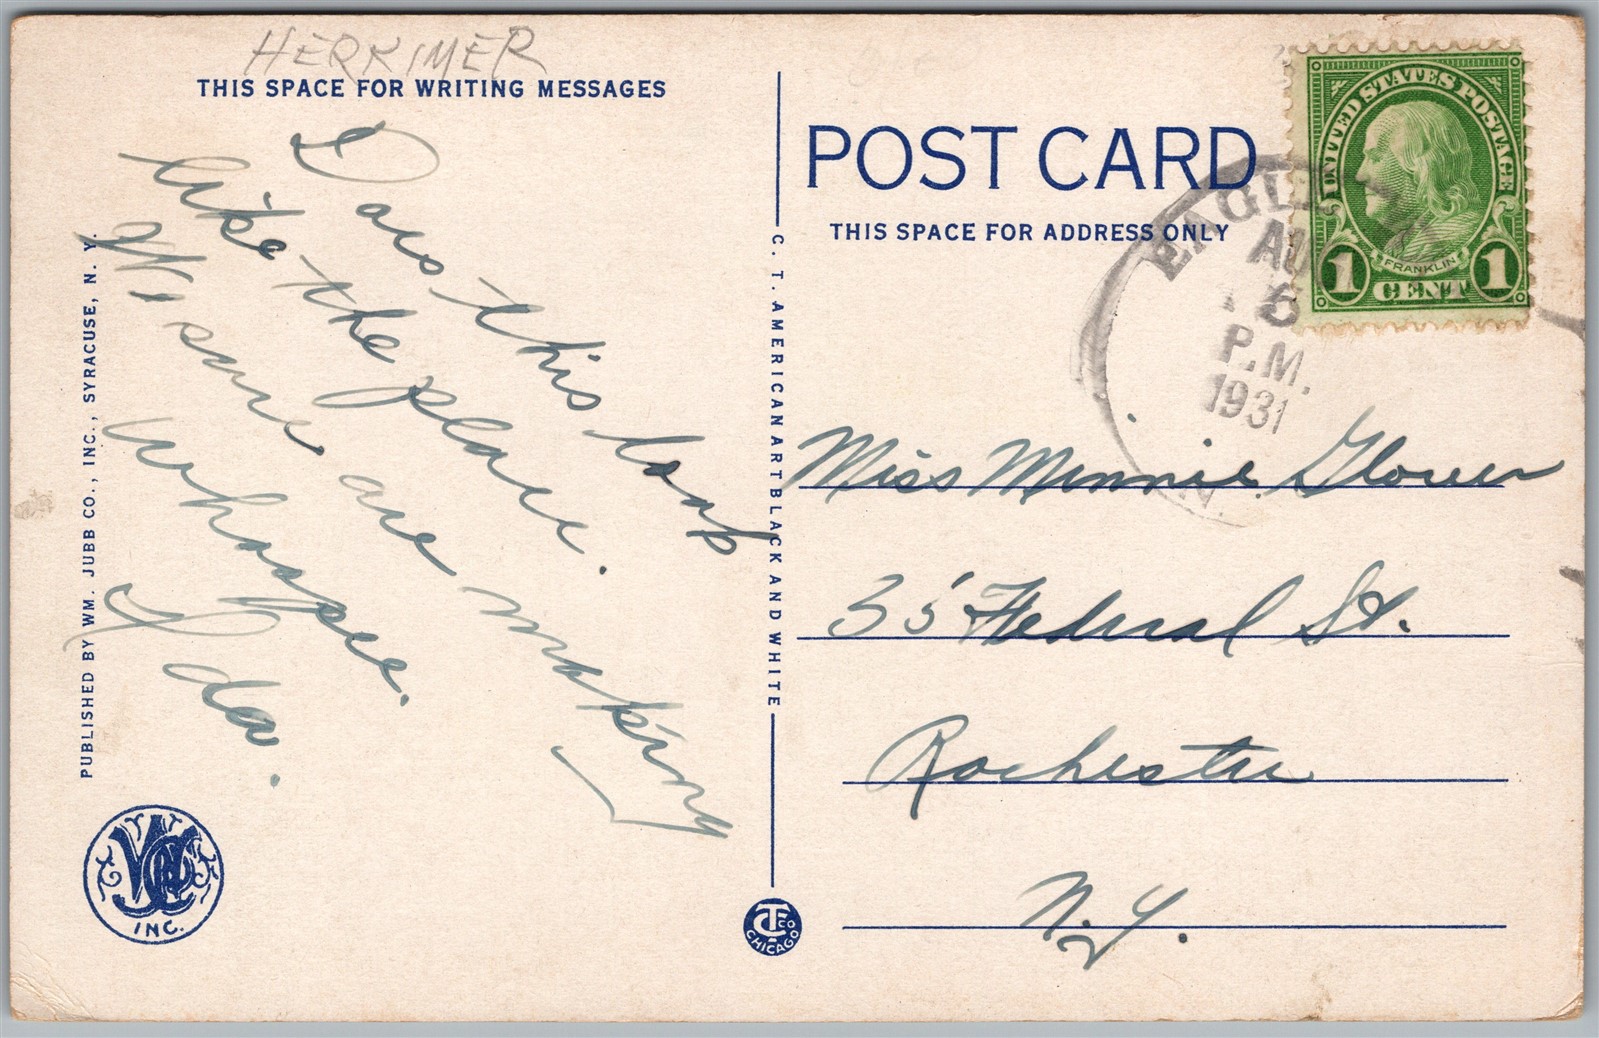 HERKIMER
THIS SPACE FOR WRITING MESSAGES
Does this look
like the place.
We sure are making
whoopee.
Ida.
PUBLISHED BY WM. JUBB CO., INC., SYRACUSE, N. Y.
INC.
C. T. AMERICAN ART BLACK AND WHITE
CHICAGO
POST CARD
THIS SPACE FOR ADDRESS ONLY
UNITED STATES POSTAGE
FRANKLIN
1 CENT 1
EAGLE
AU
6
P.M.
1931
N.
Miss Minnie Glover
35 Federal St.
Rochester
N.Y.